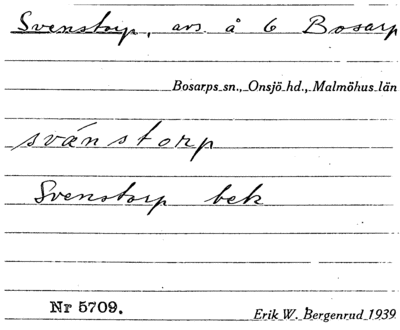 Svenstorp, avs. å 6 Bosarp
Bosarps sn., Onsjö hd., Malmöhus län
svánstorp
Svenstorp bek
Nr 5709.
Erik W. Bergenrud 1939